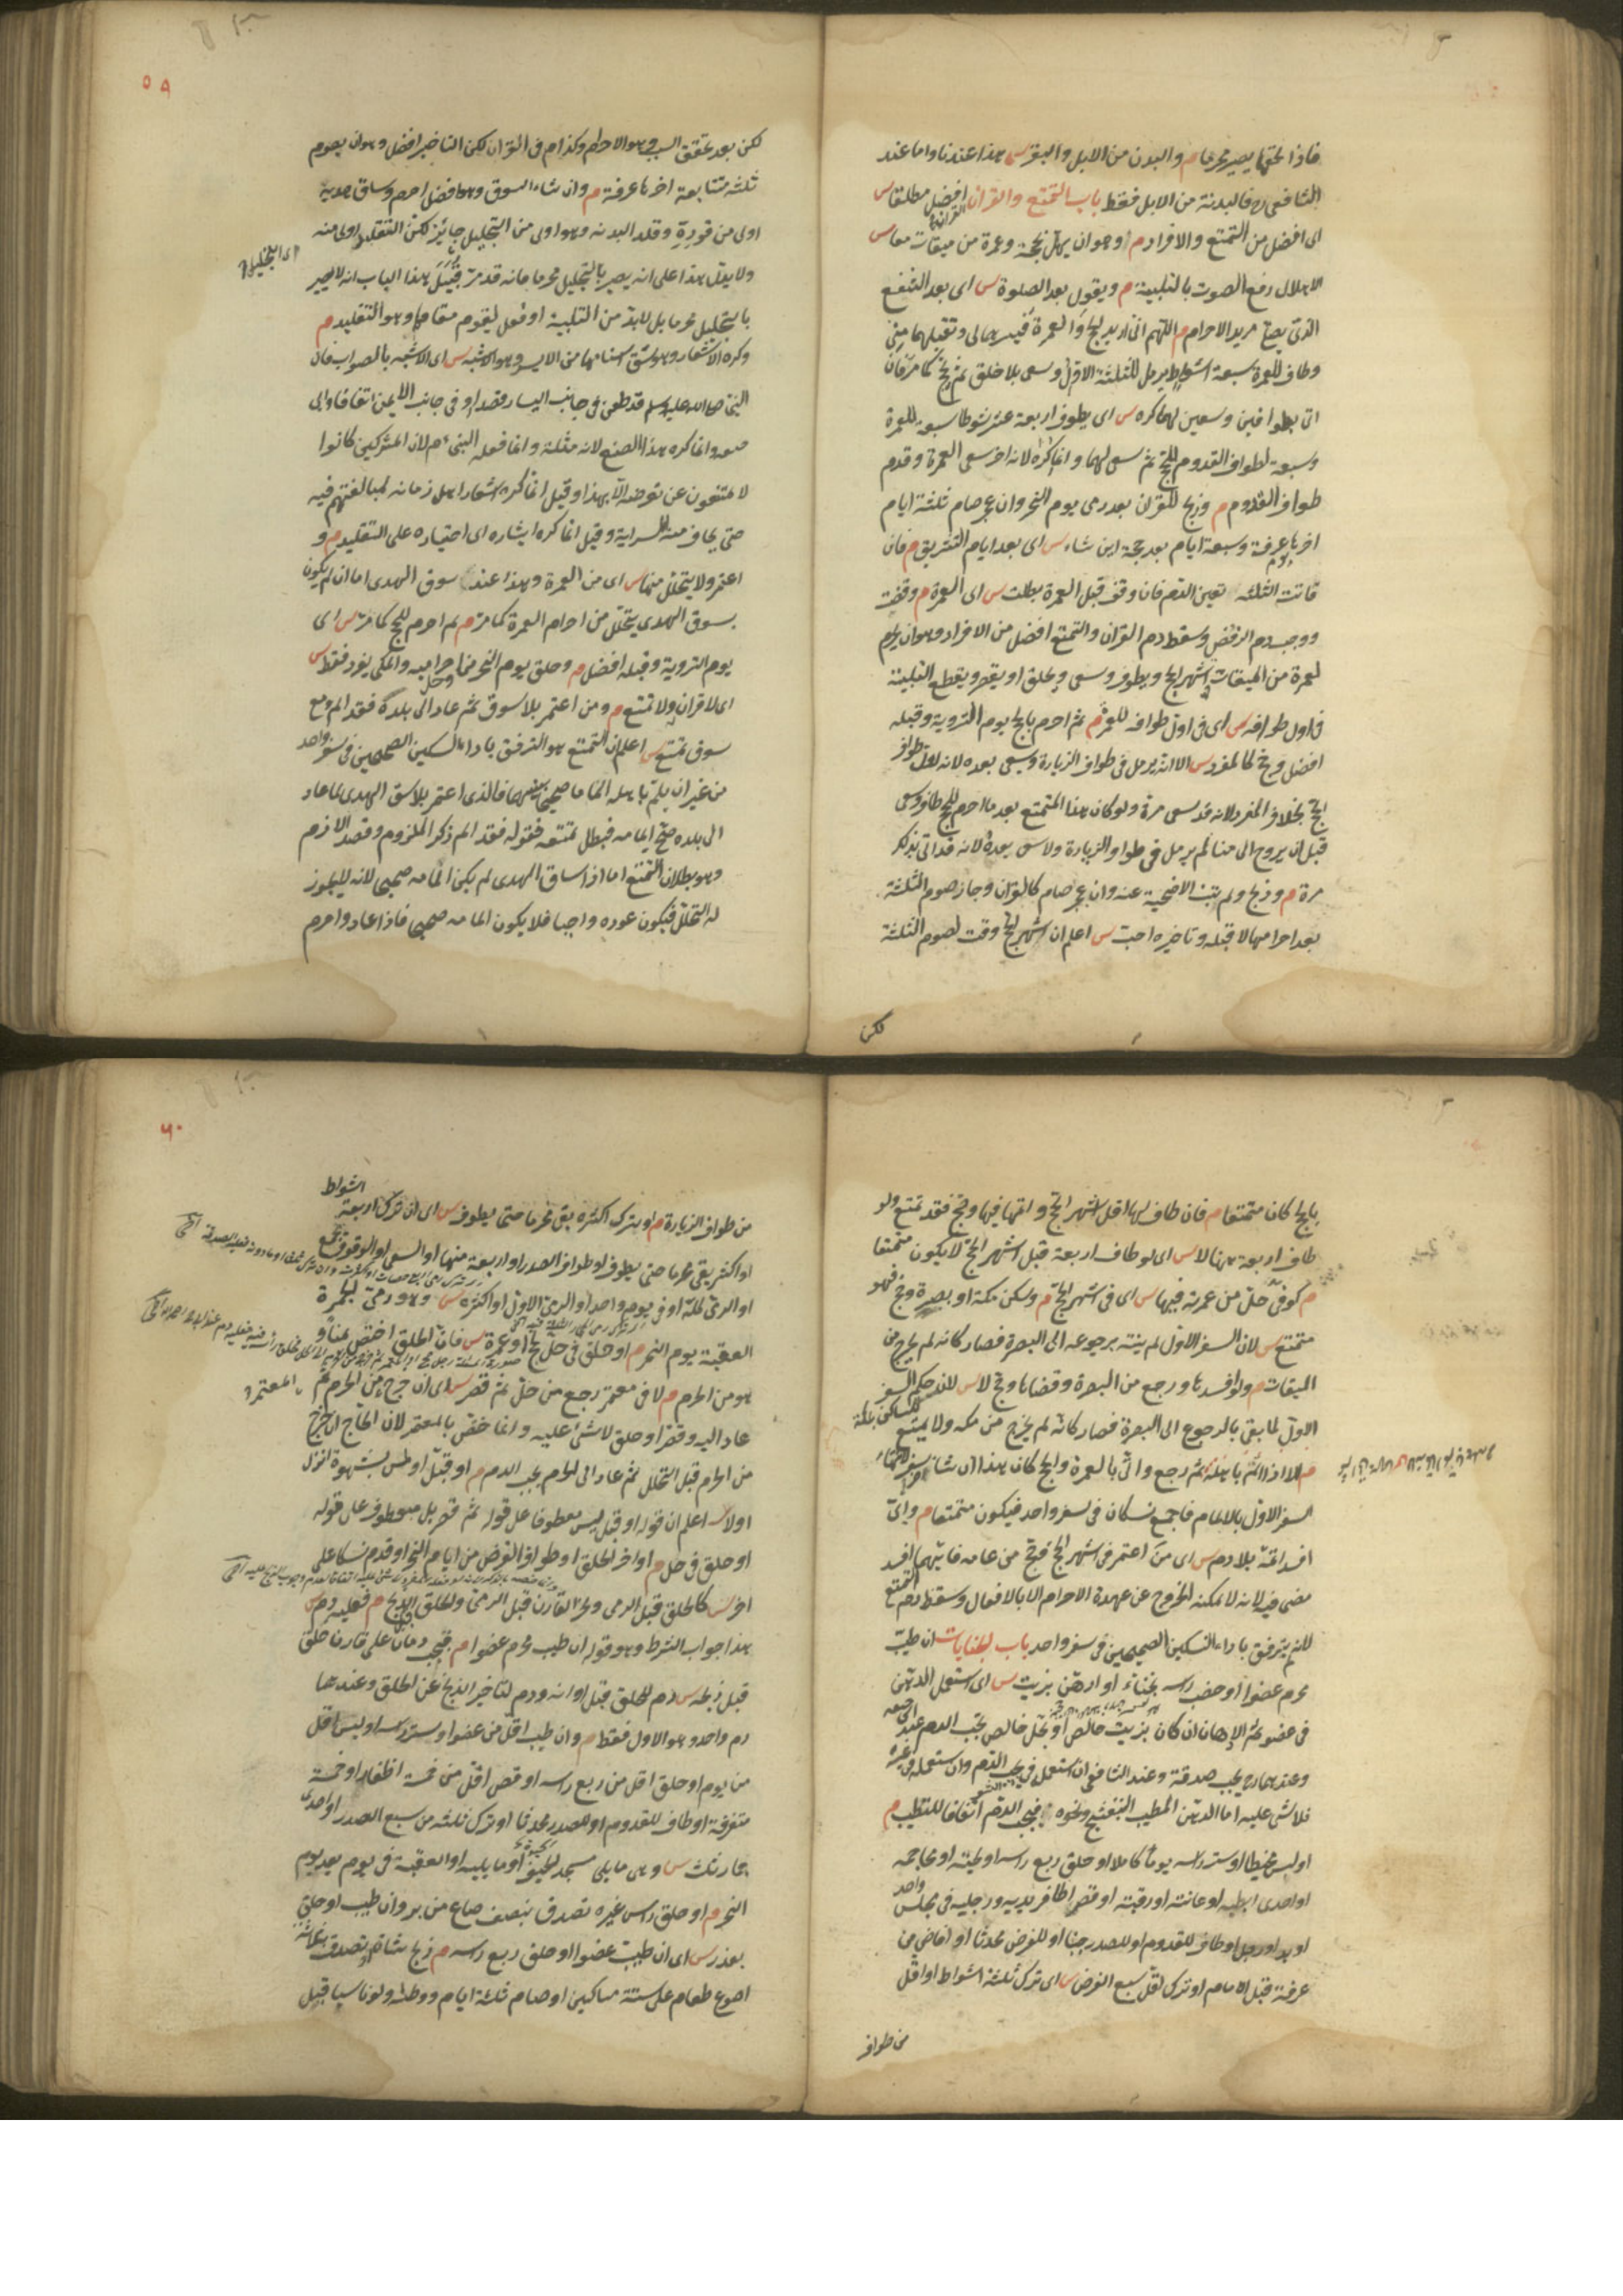 فاذا لحقها يصير محرما م والبدن من الابل والبقر س هذا عندنا واما عند
الشافعي رح فالبدنة من الابل فقط باب التمتع والقران افضل مطلقا س
اى افضل من التمتع والافراد م وهو ان يهل بحجة وعمرة من ميقات معا س
الاهلال رفع الصوت بالتلبية م ويقول بعد الصلوة س اى بعد الشفع
الذى يصلى مريد الاحرام م اللهم انى اريد الحج والعمرة فيسرهما لى وتقبلهما منى
وطاف للعمرة سبعة اشواط يرمل للثلثة الاول ويسعى بلا حلق ثم يحج كما مر فان
اتى بطوافين وسعيين لهما كره س اى يطوف اربعة عشر شوطا سبعة للعمرة
وسبعة لطواف القدوم للحج ثم سعى لهما وانما كره لانه اخر سعى العمرة وقدم
طواف القدوم م وذبح للقران بعد رمى يوم النحر وان عجز صام ثلثة ايام
اخرها عرفة وسبعة ايام بعد حجة اين شاء س اى بعد ايام التشريق م فان
فاتت الثلثة تعين الدم فان وقف قبل العمرة بطلت س اى العمرة م وقضيت
ووجب دم الرفض وسقط دم القران والتمتع افضل من الافراد وهو ان يحرم
لعمرة من الميقات فى اشهر الحج ويطوف ويسعى ويحلق او يقصر ويقطع التلبية
فى اول طوافه س اى فى اول طوافه للعمرة م ثم احرم بالحج يوم التروية وقبله
افضل وحج كالمفرد س الا انه يرمل فى طواف الزيارة ويسعى بعده لانه اول طواف
الحج بخلاف المفرد لانه قد سعى مرة ولو كان هذا المتمتع بعد ما احرم للحج طاف وسعى
قبل ان يروح الى منا لم يرمل فى طواف الزيارة ولا يسعى بعده لانه قد اتى بذلك
مرة م وذبح ولم تنب الاضحية عنه وان عجز صام كالقران وجاز صوم الثلثة
بعد احرامها لا قبله وتاخيره احب س اعلم ان اشهر الحج وقت لصوم الثلثة
لكن
٥٩
لكن بعد تحقق السبب وهو الاحرام وكذا م فى القران لكن التاخير افضل وهو ان يصوم
ثلثة متتابعة اخرها عرفة م وان شاء السوق وهو افضل احرم وساق هديه
اولى من قوده وقلد البدنه وهو اولى من التجليل جايز لكن التقليد اولى منه
ولا يدل هذا على انه يصير بالتجليل محرما فانه قد مر قبيل هذا الباب انه لا يصير
اى التجليل
بالتجليل محرما بل لابد من التلبية او فعل ليقوم مقامها وهو التقليد م
وكره الاشعار وهو شق سنامها من الايسر وهو الاشبه س اى الاشبه بالصواب فان
النبى صلى الله عليه وسلم قد طعن فى جانب اليسار قصدا وفى جانب الايمن اتفاقا وابى
وانما كره هذا الصنع لانه مثلة وانما فعله النبى عم لان المشركين كانوا
لا يمتنعون عن تعرضه الا بهذا وقيل انما كره اشعار اهل زمانه لمبالغتهم فيه
حتى يخاف منه السراية وقيل انما كره ايثاره اى اختياره على التقليد م و
اعتمر ولا يتحلل منها س اى من العمرة وهذا عند سوق الهدى اما ان لم يكن
بسوق الهدى يتحلل من احرام العمرة كما مر م ثم احرم للحج كما مر س اى
يوم التروية وقبله افضل م وحلق يوم النحر وحل من احراميه والمكى يفرد فقط س
اى لا قران ولا تمتع م ومن اعتمر بلا سوق ثم عاد الى بلده فقد الم ومع
سوق تمتع س اعلم ان التمتع هو الترفق باداء النسكين الصحيحين فى سفر واحد
من غير ان يلم باهله الماما صحيحا بينهما فالذى اعتمر بلا سوق الهدى لما عاد
الى بلده صح المامه فبطل تمتعه فقوله فقد الم ذكر الملزوم وقصد اللازم
وهو بطلان التمتع اما اذا ساق الهدى لم يكن المامه صحيحا لانه لا يجوز
له التحلل فيكون عوده واجبا فلا يكون المامه صحيحا فاذا عاد واحرم
بالحج كان متمتعا م فان طاف لها اقل قبل اشهر الحج واتمها فيها وحج فقد تمتع ولو
طاف اربعة هنا لا س اى لو طاف اربعة قبل اشهر الحج لا يكون متمتعا
م كوفى حل من عمرته فيها س اى فى اشهر الحج م وسكن مكة او بصرة وحج فهو
متمتع س لان السفر الاول لم ينته برجوعه الى البصرة فصار كانه لم يخرج من
الميقات م ولو افسدها ورجع من البصرة وقضاها وحج لا س لان حكم السفر
الاول لما بقى بالرجوع الى البصرة فصار كانه لم يخرج من مكه ولا تمتع للساكن بمكة
م الا اذا الم باهله ثم رجع واتى بالعمرة والحج كان هذا انشاء سفر لانتهاء
السفر الاول بالالمام فاجتمع نسكان فى سفر واحد فيكون متمتعا م واى
افسد اتمه بلا دم س اى من اعتمر فى اشهر الحج فحج من عامه فايهما افسد
مضى فيه لانه لا يمكنه الخروج عن عهدة الاحرام الا بالافعال وسقط دم التمتع
لانه لم يترفق باداء النسكين الصحيحين فى سفر واحد باب الجنايات ان طيب
محرم عضوا او خضب راسه بحناء او ادهن بزيت س اى استعمل الدهن
فى عضو ثم الادهان ان كان بزيت خالص او بخل خالص يجب الدم عند ابى حنيفة
وعندهما رح يجب صدقة وعند الشافعى ان استعمل فى الشعر يجب الدم وان استعمله فى غيره
فلا شئ عليه اما الدهن المطيب كالبنفسج ونحوه فيجب الدم اتفاقا للتطيب م
او لبس مخيطا او ستر راسه يوما كاملا او حلق ربع راسه او لحيته او محاجمه
او احدى ابطيه او عانته او رقبته او قص اظافير يديه ورجليه فى مجلس واحد
او يد او رجل او طاف للقدوم او للصدر جنبا او للفرض محدثا او افاض من
عرفة قبل الامام او ترك اقل سبع الفرض س اى ترك ثلثة اشواط او اقل
من طواف
٦٠
من طواف الزيارة م او بترك اكثره بقى محرما حتى يطوف س اى ان ترك اربعة اشواط
او اكثر بقى محرما حتى يطوف او طواف الصدر او اربعة منها او السعى او الوقوف بجمع
او الرمى كله او فى يوم واحد او الرمى الاول او اكثره س وهو رمى جمرة
العقبة يوم النحر م او حلق فى حل بحج او عمرة س فان الحلق اختص بمنا و
هو من الحرم م لا فى معتمر رجع من حل ثم قصر س اى ان خرج من الحرم ثم
المعتمر
عاد اليه وقصر او حلق لا شئ عليه وانما خص بالمعتمر لان الحاج ان خرج
من الحرم قبل التحلل ثم عاد الى الحرم يجب الدم م او قبل او لمس بشهوة انزل
اولا س اعلم ان قوله او قبل ليس معطوفا على قوله ثم قصر بل معطوف على قوله
او حلق فى حل م او اخر الحلق او طواف الفرض من ايام النحر او قدم نسكا على
اخر س كالحلق قبل الرمى ونحر القارن قبل الرمى والحلق قبل الذبح م فعليه دم س
هذا جواب الشرط وهو قوله ان طيب محرم عضوا م فيجب دمان على قارن ان حلق
قبل ذبحه س دم للحلق قبل اوانه ودم لتاخير الذبح عن الحلق وعندهما
دم واحد وهو الاول فقط م وان طيب اقل من عضو او ستر راسه او لبس اقل
من يوم او حلق اقل من ربع راسه او قص اقل من خمسة اظفار او خمسة
متفرقة او طاف للقدوم او للصدر محدثا او ترك ثلثة من سبع الصدر او احدى
جمار ثلث س وهى ما يلى مسجد الخيف او ما يليه او العقبة فى يوم بعد يوم
النحر م او حلق راس غيره تصدق بنصف صاع من بر وان طيب او حلق
بعذر س اى ان طيب عضوا او حلق ربع راسه م ذبح شاة او تصدق بثلثة
اصوع طعام على ستة مساكين او صام ثلثة ايام ووطئه ولو ناسيا قبل